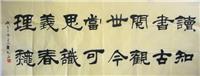 讀書閱世當思義理
知古觀今可識春龝